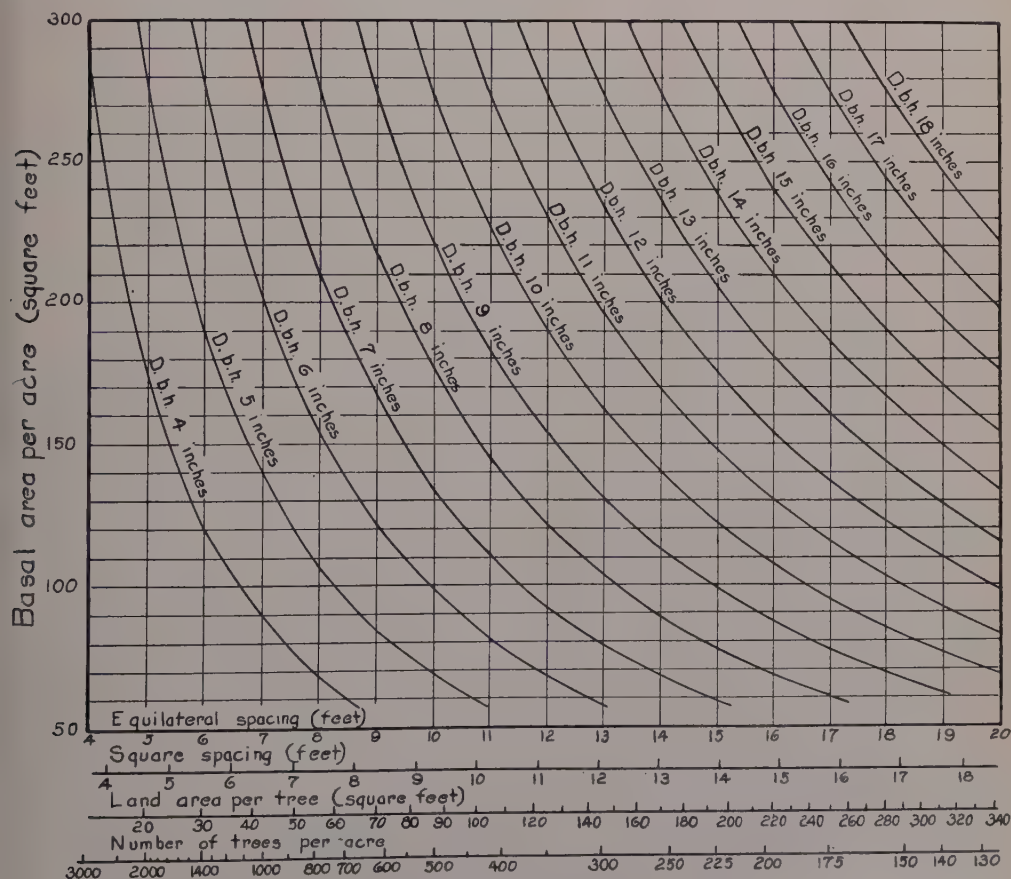 Basal area per acre (square feet)
300
250
200
150
100
50
D.b.h. 4 inches
D.b.h. 5 inches
D.b.h. 6 inches
D.b.h. 7 inches
D.b.h. 8 inches
D.b.h. 9 inches
D.b.h. 10 inches
D.b.h. 11 inches
D.b.h. 12 inches
D.b.h. 13 inches
D.b.h. 14 inches
D.b.h 15 inches
D.b.h. 16 inches
D.b.h. 17 inches
D.b.h. 18 inches
Equilateral spacing (feet)
4 5 6 7 8 9 10 11 12 13 14 15 16 17 18 19 20
Square spacing (feet)
4 5 6 7 8 9 10 11 12 13 14 15 16 17 18
Land area per tree (square feet)
20 30 40 50 60 70 80 90 100 120 140 160 180 200 220 240 260 280 300 320 340
Number of trees per acre
3000 2000 1400 1000 800 700 600 500 400 300 250 225 200 175 150 140 130